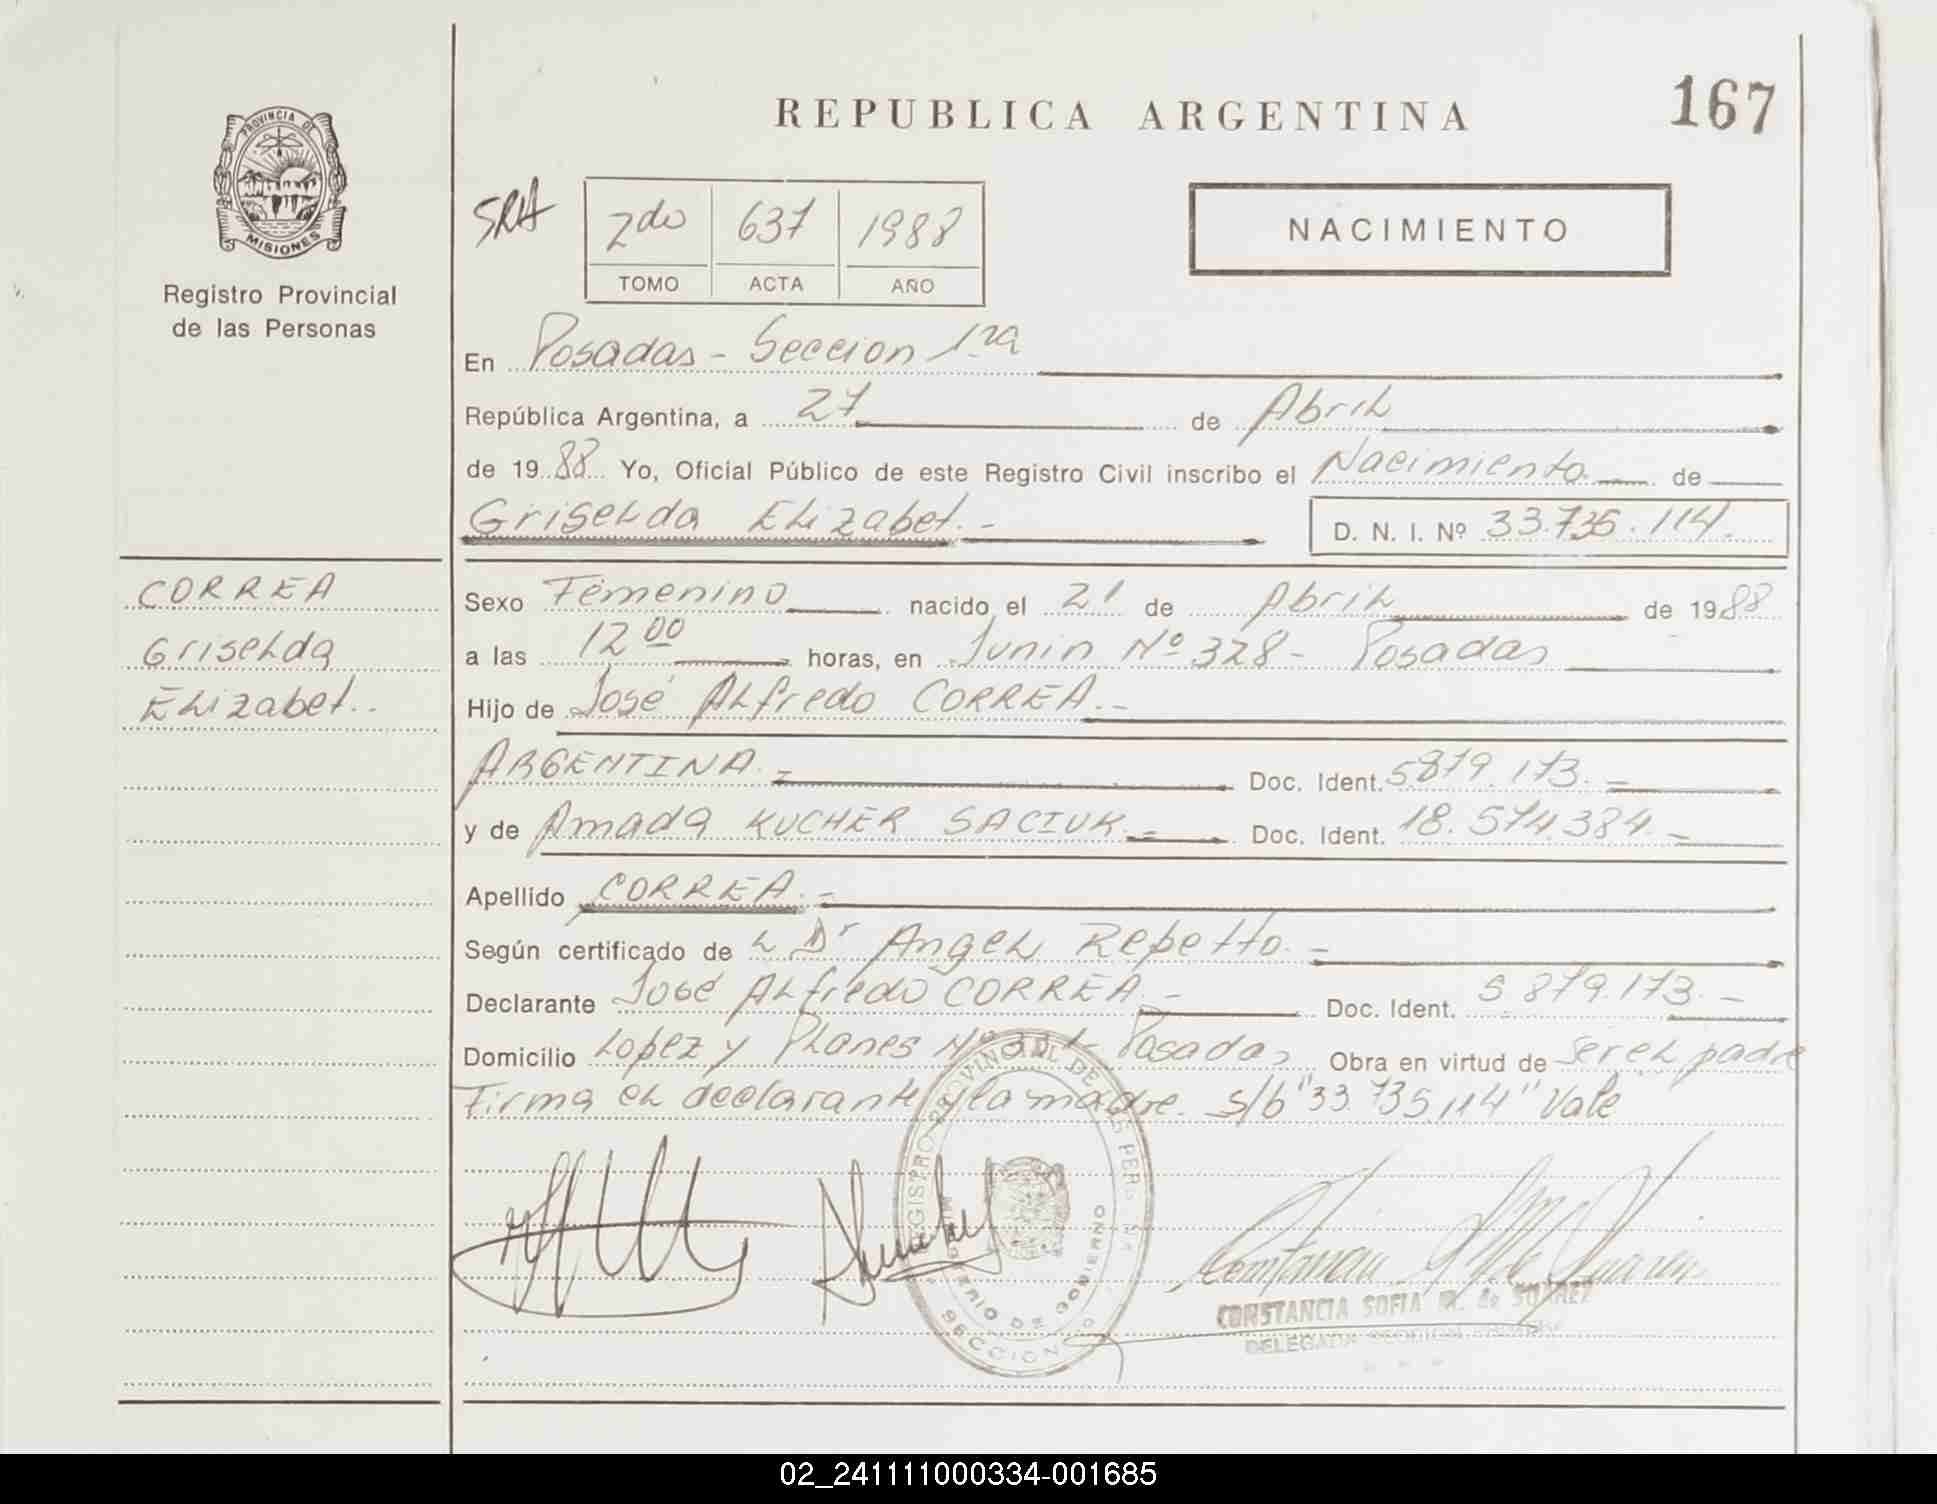 REPUBLICA ARGENTINA
167
PROVINCIA DE
MISIONES
Registro Provincial
de las Personas
SRA
2do 637 1988
TOMO ACTA AÑO
NACIMIENTO
En Posadas - Seccion 1ra
República Argentina, a 27 de Abril
de 1988 Yo, Oficial Público de este Registro Civil inscribo el Nacimiento de
Griselda Elizabet.-
D. N. I. Nº 33.735.114.
CORREA
Griselda
Elizabet..
Sexo Femenino nacido el 21 de Abril de 1988
a las 12 00 horas, en Junin Nº 328 - Posadas
Hijo de José Alfredo CORREA.-
ARGENTINA.- Doc. Ident. 5879.173.-
y de Amada KUCHER SACIUK.- Doc. Ident. 18.574.384.-
Apellido CORREA.-
Según certificado de l Dr Angel Repetto.-
Declarante José Alfredo CORREA.- Doc. Ident. 5 879.173.-
Domicilio Lopez y Planes Nº Posadas Obra en virtud de ser el padre
Firma el declarante y la madre. s/b "33.735,114" Vale
REGISTRO PROVINCIAL DE LAS PERSONAS
MINISTERIO DE GOBIERNO
SECCION
CONSTANCIA SOFIA M. de SUAREZ
DELEGADA
02_241111000334-001685